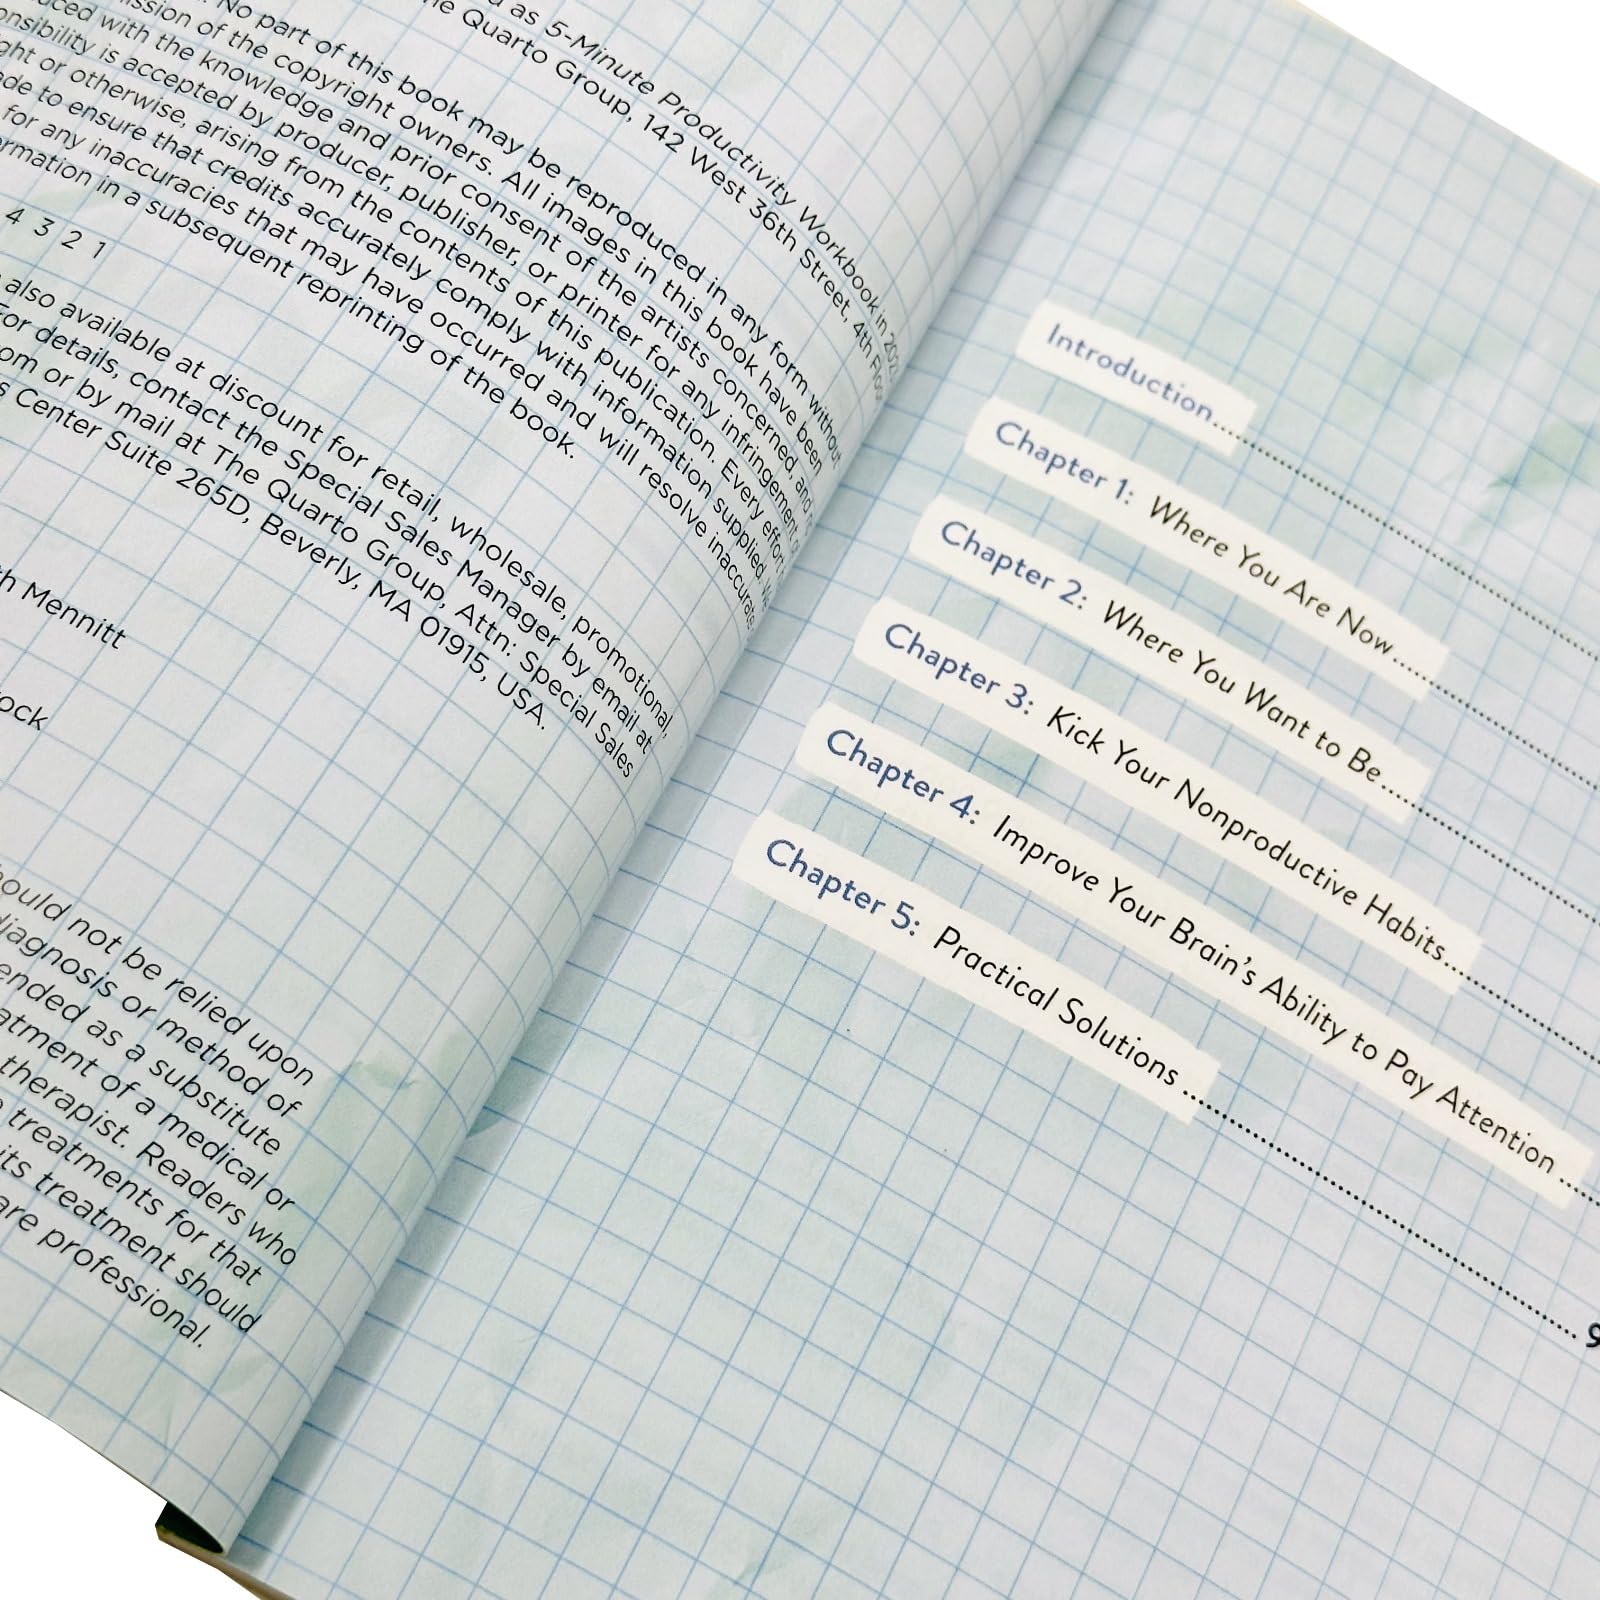 as 5-Minute Productivity Workbook in
Quarto Group, 142 West 36th Street, 4th
No part of this book may be reproduced in any form without
of the copyright owners. All images in this book have been
with the knowledge and prior consent of the artists concerned, and
is accepted by producer, publisher, or printer for any infringement
or otherwise, arising from the contents of this publication. Every effort
to ensure that credits accurately comply with information supplied. We
for any inaccuracies that may have occurred and will resolve inaccurate
in a subsequent reprinting of the book.
4 3 2 1
also available at discount for retail, wholesale, promotional,
For details, contact the Special Sales Manager by email at
or by mail at The Quarto Group, Attn: Special Sales
Center Suite 265D, Beverly, MA 01915, USA.
Mennitt
not be relied upon
diagnosis or method of
as a substitute
of a medical or
therapist. Readers who
treatments for that
its treatment should
professional.
Introduction
Chapter 1: Where You Are Now
Chapter 2: Where You Want to Be
Chapter 3: Kick Your Nonproductive Habits
Chapter 4: Improve Your Brain's Ability to Pay Attention
Chapter 5: Practical Solutions